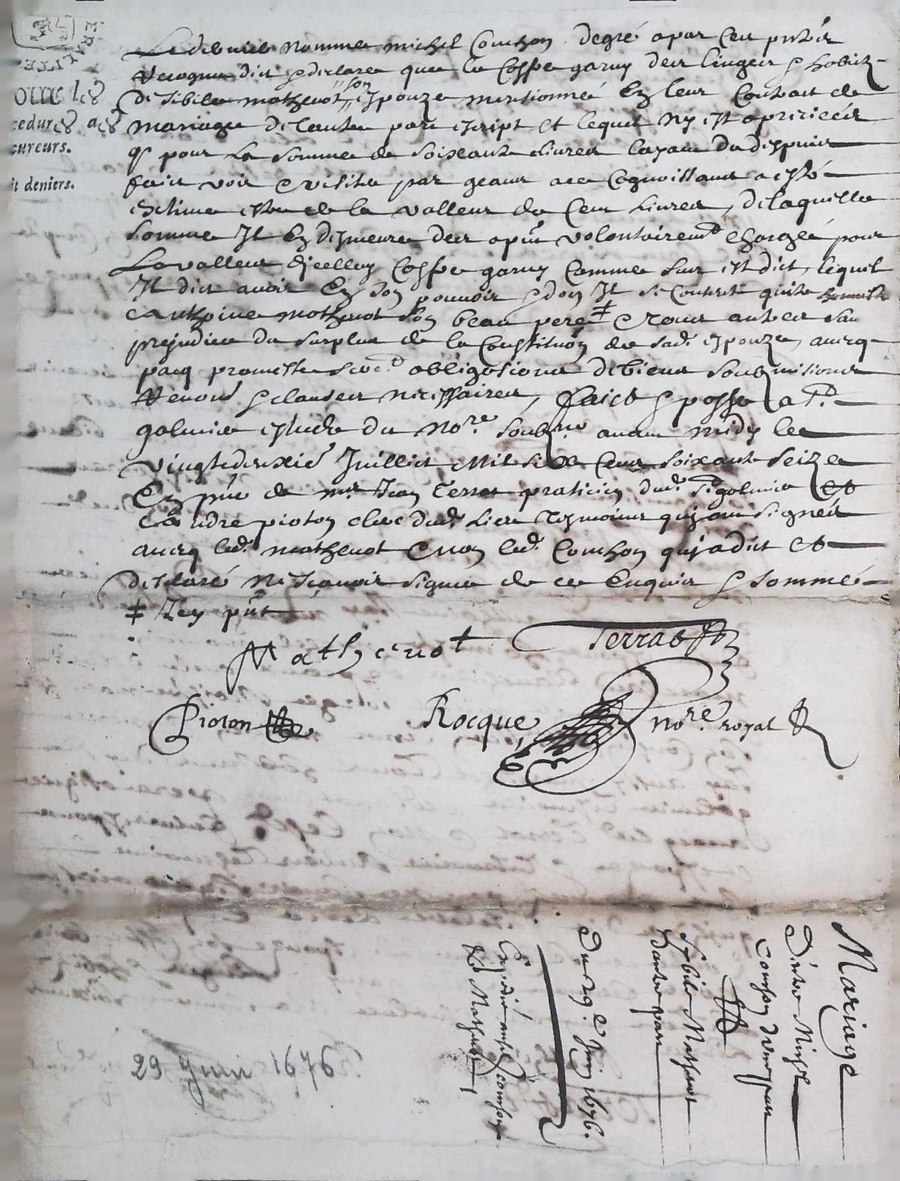 ERALITE
Pour les
cedures des
cureurs.
it deniers.
Ledit nommé michel Comson degré a par ces pntes
Recogneu dict & declaré que le Coffre garny des linges & habitz
de sibile mathevot son espouze mentionné En leur Contrat de
mariage de l'autre part escript et lequel N'y est
que pour la somme de soixante livres layant du depuis
faict voir & visité par geans a ce Cognoissans a esté
Estimé estre de la valleur de Cent livres, de laquelle
somme Il En demeure des a pnt volontairemt Chargé pour
La valleur d'jcelluy Coffre garny Comme sus est dict, lequel
Il dict avoir En son pouvoir & don Il se Contente quite
anthoine mathevot son beau pere ‡ & tous autres sans
prejudice du surplus de la Constitution de sade espouze, avecq
pacq promesse obligations de biens soubmissions
Renon & clauses necessaires, faict & passé a St
galmier estude du Nore soubzne avant midy le
vingtdeuxie Juilliet Mil six Cens soixante seize
En pnce de mre Jean Terrat praticien dud St galmier et
Claudre pioton clerc dud lieu tesmoins qui ont signés
avecq led mathevot & non led Comson qui a dict et
declaré Ne sçavoir signer de ce Enquis & sommé
‡ Icy pnt
Mathevot Terrat
Pioton Rocque nore royal
Mariage
D'entre Michel
Comson d'une part
Et
Sybile Mathevot
d'autre part
Du 29e Juin 1676.
Expedié audt Comson
& Mathevot
29 Juin 1676